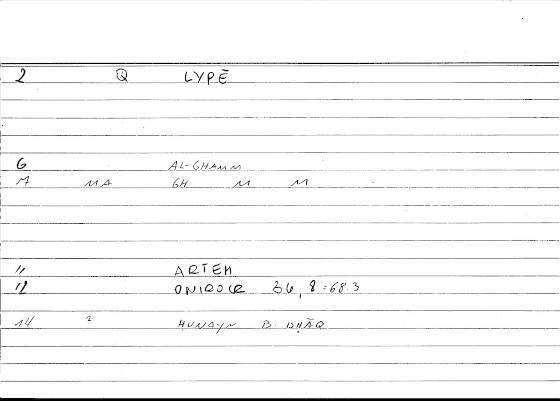 2 Q LYPĒ
6 AL-GHAMM
7 MA GH M M
11 ARTEM
12 ONIROCR 36, 8 = 68.3
14 2 HUNAYN B. ISHĀQ